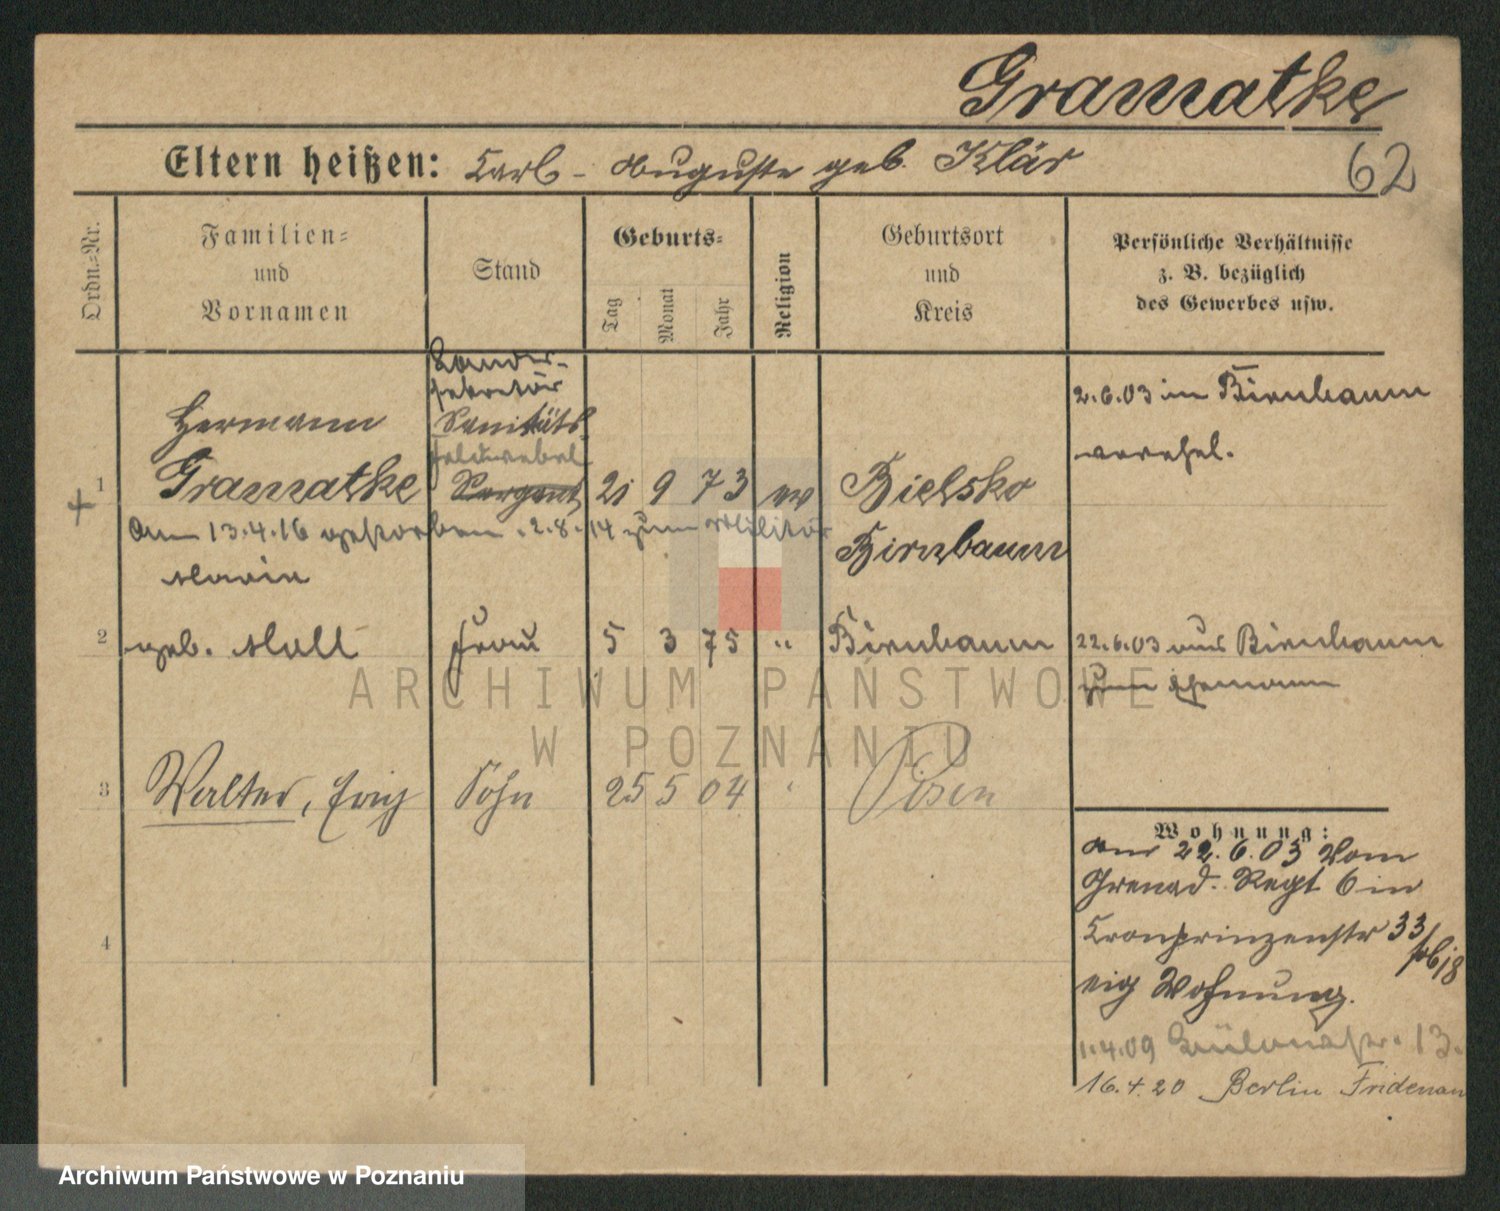 Gramatke
Eltern heißen: Carl - Auguste geb. Klär
62
Ordn.-Nr.
Familien-
und
Vornamen
Stand
Geburts-
Tag
Monat
Jahr
Religion
Geburtsort
und
Kreis
Persönliche Verhältnisse
z. B. bezüglich
des Gewerbes usw.
sekretär
Hermann
Sanitäts
feldwebel
1 Gramatke Sergent 21 9 73 ev Bielsko
Birnbaum
2.6.03 in Birnbaum
verehel.
+
am 13.4.16 gestorben . 2.8.14 zum Militär
Marie
2 geb. Moll Frau 5 3 75 " Birnbaum
22.6.03 aus Birnbaum
zum Ehemann
3 Walter, Sohn 25 5 04 Posen
4
Wohnung:
am 22.6.03 vom
Grenad. Regt 6 in
Cronprinzenstr 33
eig Wohnung.
1.4.09 13.
16.4.20 Berlin Fridenau
ARCHIWUM PAŃSTWOWE
W POZNANIU
Archiwum Państwowe w Poznaniu